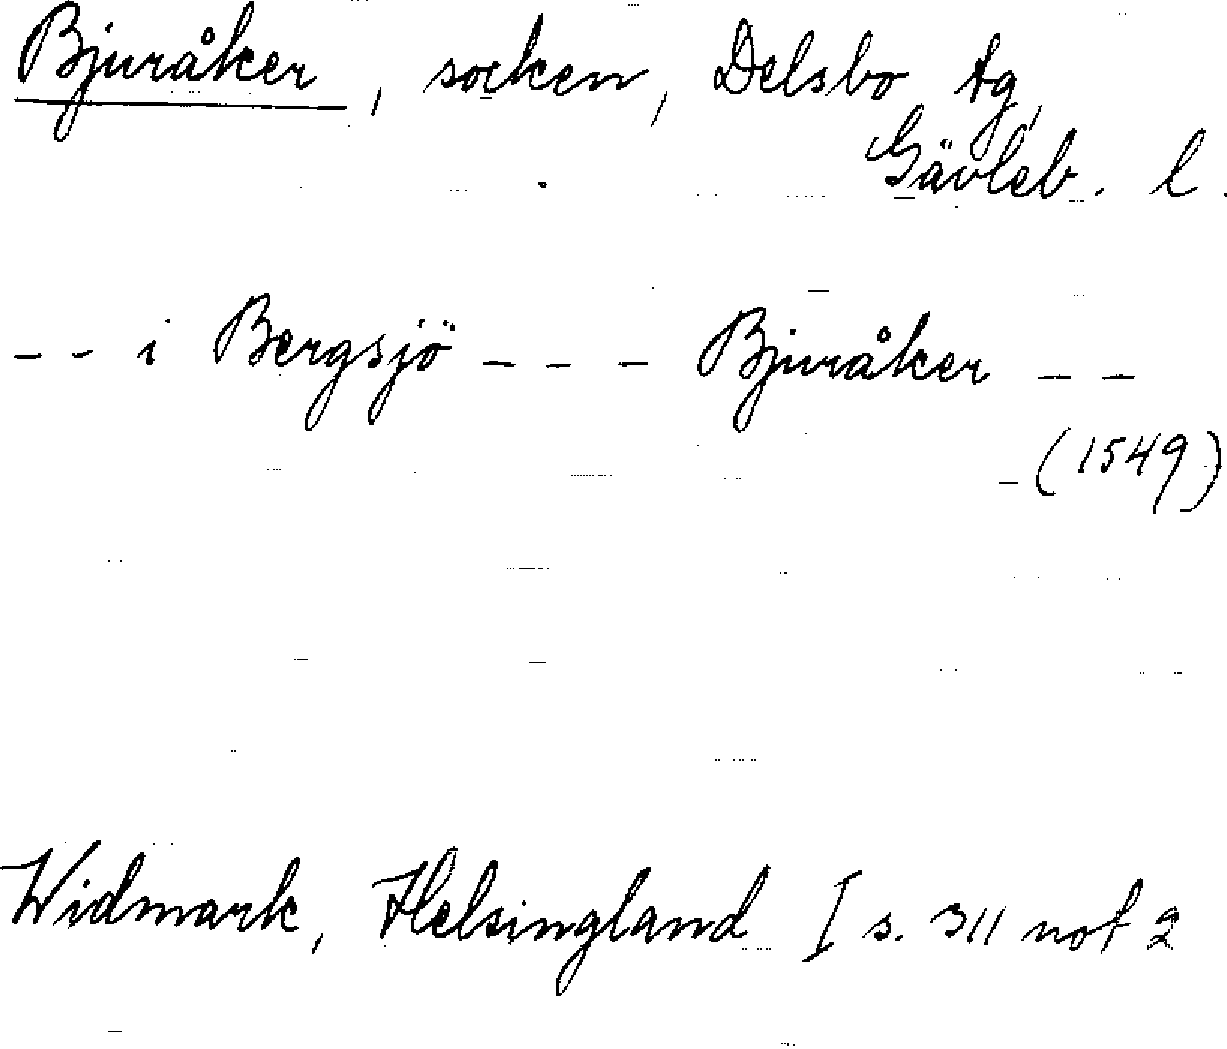 Bjuråker, socken, Delsbo tg,
Gävleb. l.
-- i Bergsjö --- Bjuråker --
(1549)
Widmark, Helsingland I s. 311 not 2